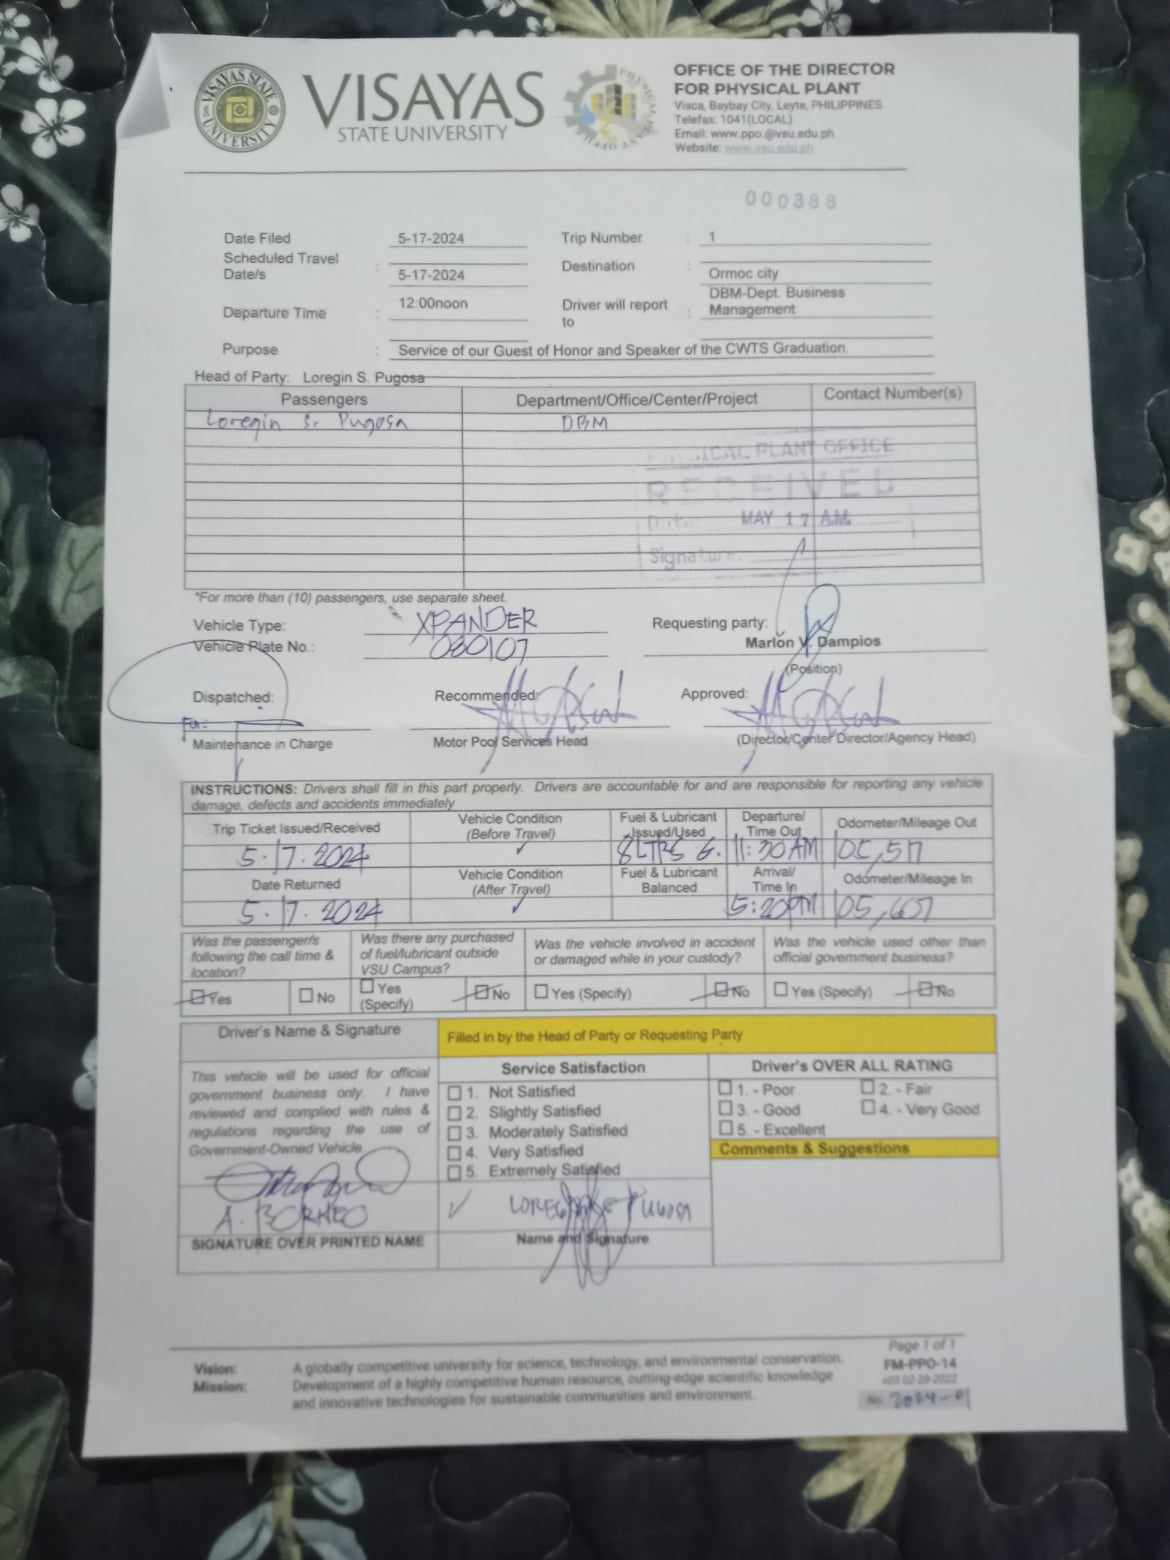 VISAYAS STATE UNIVERSITY
VISAYAS
STATE UNIVERSITY
OFFICE OF THE DIRECTOR
FOR PHYSICAL PLANT
Visca, Baybay City, Leyte, PHILIPPINES
Telefax: 1041(LOCAL)
Email: www.ppo.@vsu.edu.ph
Website: www.vsu.edu.ph
000388
Date Filed 5-17-2024 Trip Number : 1
Scheduled Travel Date/s : 5-17-2024 Destination : Ormoc city
Departure Time : 12:00noon Driver will report to : DBM-Dept. Business Management
Purpose : Service of our Guest of Honor and Speaker of the CWTS Graduation
Head of Party: Loregin S. Pugosa
Passengers Department/Office/Center/Project Contact Number(s)
Loregin S. Pugosa DBM
PLANT OFFICE
RECEIVED
Date: MAY 17 A.M.
Signature:
*For more than (10) passengers, use separate sheet.
Vehicle Type: XPANDER Requesting party:
Vehicle Plate No.: 030107 Marlon V. Dampios
(Position)
Dispatched: Recommended: Approved:
For:
Maintenance in Charge Motor Pool Services Head (Director/Center Director/Agency Head)
INSTRUCTIONS: Drivers shall fill in this part properly. Drivers are accountable for and are responsible for reporting any vehicle
damage, defects and accidents immediately
Trip Ticket Issued/Received Vehicle Condition (Before Travel) Fuel & Lubricant Issued/Used Departure/ Time Out Odometer/Mileage Out
5.17.2024 ✓ 8LTRS G. 11:30AM 05,517
Date Returned Vehicle Condition (After Travel) Fuel & Lubricant Balanced Arrival/ Time In Odometer/Mileage In
5.17.2024 ✓ 5:20PM 05,607
Was the passenger/s following the call time & location? Was there any purchased of fuel/lubricant outside VSU Campus? Was the vehicle involved in accident or damaged while in your custody? Was the vehicle used other than official government business?
Yes No Yes (Specify) No Yes (Specify) No Yes (Specify) No
Driver's Name & Signature Filled in by the Head of Party or Requesting Party
This vehicle will be used for official
government business only. I have
reviewed and complied with rules &
regulations regarding the use of
Government-Owned Vehicle
A. BORNEO
SIGNATURE OVER PRINTED NAME
Service Satisfaction
1. Not Satisfied
2. Slightly Satisfied
3. Moderately Satisfied
4. Very Satisfied
5. Extremely Satisfied
✓ Pugosa
Name and Signature
Driver's OVER ALL RATING
1. - Poor 2. - Fair
3. - Good 4. - Very Good
5. - Excellent
Comments & Suggestions
Page 1 of 1
Vision: A globally competitive university for science, technology, and environmental conservation.
Mission: Development of a highly competitive human resource, cutting-edge scientific knowledge
and innovative technologies for sustainable communities and environment.
FM-PPO-14
v03 02-28-2022
No. 2024-01